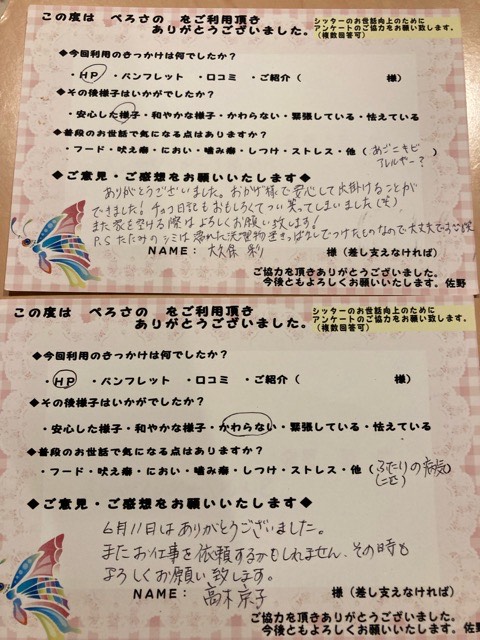 この度は ぺろさの をご利用頂き
ありがとうございました。
シッターのお世話向上のために
アンケートのご協力をお願い致します。
(複数回答可)
◆今回利用のきっかけは何でしたか?
・HP ・パンフレット ・口コミ ・ご紹介( 様)
◆その後様子はいかがでしたか?
・安心した様子・和やかな様子・かわらない・緊張している・怯えている
◆普段のお世話で気になる点はありますか?
・フード・吠え癖・におい・噛み癖・しつけ・ストレス・他(あごニキビ
アレルギー?
◆ご意見・ご感想をお願いいたします◆
ありがとうございました。おかげ様で安心して出掛けることが
できました!チョコ日記もおもしろくてつい笑ってしまいました(笑)
また家を空ける際はよろしくお願い致します!
P.S たたみのシミは濡れた洗濯物置きっぱなしでつけたものなので大丈夫です
NAME: 大久保 様(差し支えなければ)
ご協力を頂きありがとうございました。
今後ともよろしくお願いいたします。佐野
この度は ぺろさの をご利用頂き
ありがとうございました。
シッターのお世話向上のために
アンケートのご協力をお願い致します。
(複数回答可)
◆今回利用のきっかけは何でしたか?
・HP ・パンフレット ・口コミ ・ご紹介( 様)
◆その後様子はいかがでしたか?
・安心した様子・和やかな様子・かわらない・緊張している・怯えている
◆普段のお世話で気になる点はありますか?
・フード・吠え癖・におい・噛み癖・しつけ・ストレス・他(ふたりの病気)
◆ご意見・ご感想をお願いいたします◆
6月11日はありがとうございました。
またお仕事を依頼するかもしれません、その時も
よろしくお願い致します。
NAME: 高木京子 様(差し支えなければ)
ご協力を頂きありがとうございました。
今後ともよろしくお願いいたします。佐野